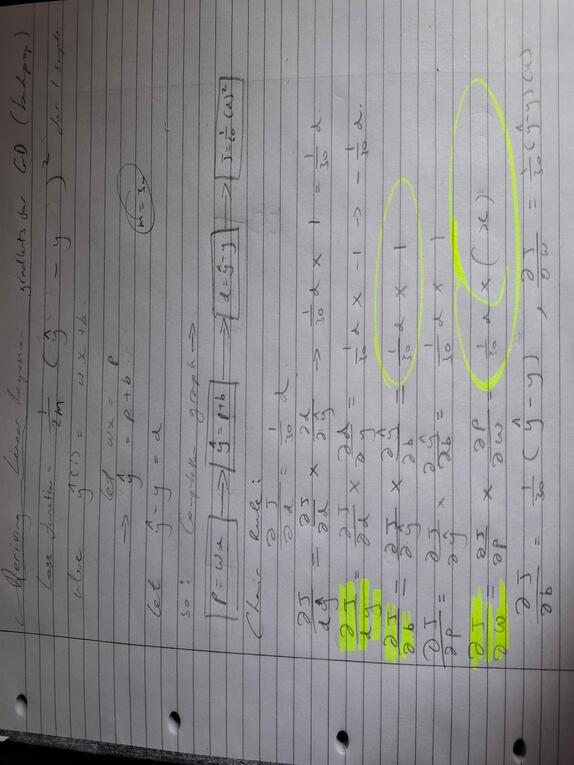 Deriving Linear Regression gradients for GD (backprop)
Loss function = 1/2m (ŷ - y)² for 1 sample
where ŷ⁽ⁱ⁾ = wx + b
let wx = p
→ ŷ = p + b
m = 30
let ŷ - y = d
so: Computation graph →
p = wx → ŷ = p + b → d = ŷ - y → J = 1/60 (d)²
Chain Rule:
∂J/∂d = 1/30 d
∂J/dŷ = ∂J/∂d × ∂d/∂ŷ → 1/30 d × 1 = 1/30 d
∂J/dy = ∂J/∂d × ∂d/∂y = 1/30 d × -1 → - 1/30 d.
∂J/∂b = ∂J/∂ŷ × ∂ŷ/∂b = 1/30 d × 1
∂J/∂p = ∂J/∂ŷ × ∂ŷ/∂b = 1/30 d × 1
∂J/∂w = ∂J/∂p × ∂p/∂w = 1/30 d × (x)
∂J/∂b = 1/30 (ŷ - y) , ∂J/∂w = 1/30 (ŷ - y)(x)